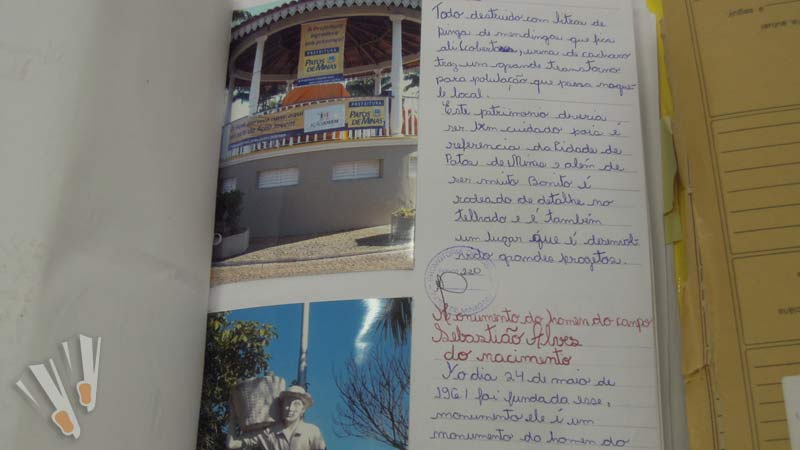 A Prefeitura
agradece a
sua presença!
PREFEITURA
PATOS DE MINAS
PREFEITURA
PATOS
DE MINAS
AÇÃO JOVEM
Todo destruido com litros de
pinga de mendingos que fica
ali (cobertos), urina de cachoro
traz um grande transtorno
para polulação que passa naque
le local.
Este patrimonio deveria
ser bem cuidado pois é
referencia da Cidade de
Patos de Minas e além de
ser muito Bonito é
rodeado de detalhe no
telhado e é também
um lugar que é desenvol
vido grandes progetos.
220
Monumento do homem do campo
Sebastião Alves
do nacimento
No dia 24 de maio de
1961 foi fundada esse,
monumento ele é um
monumento do homem do